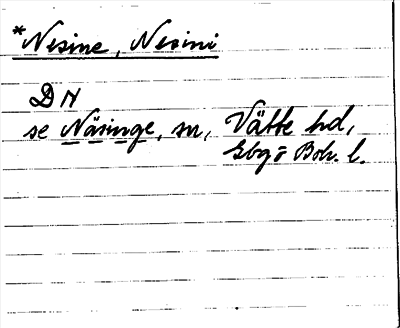 *Nesine, Nesini
DN
se Näsinge, sn, Vätte hd,
Gbg o Boh. l.